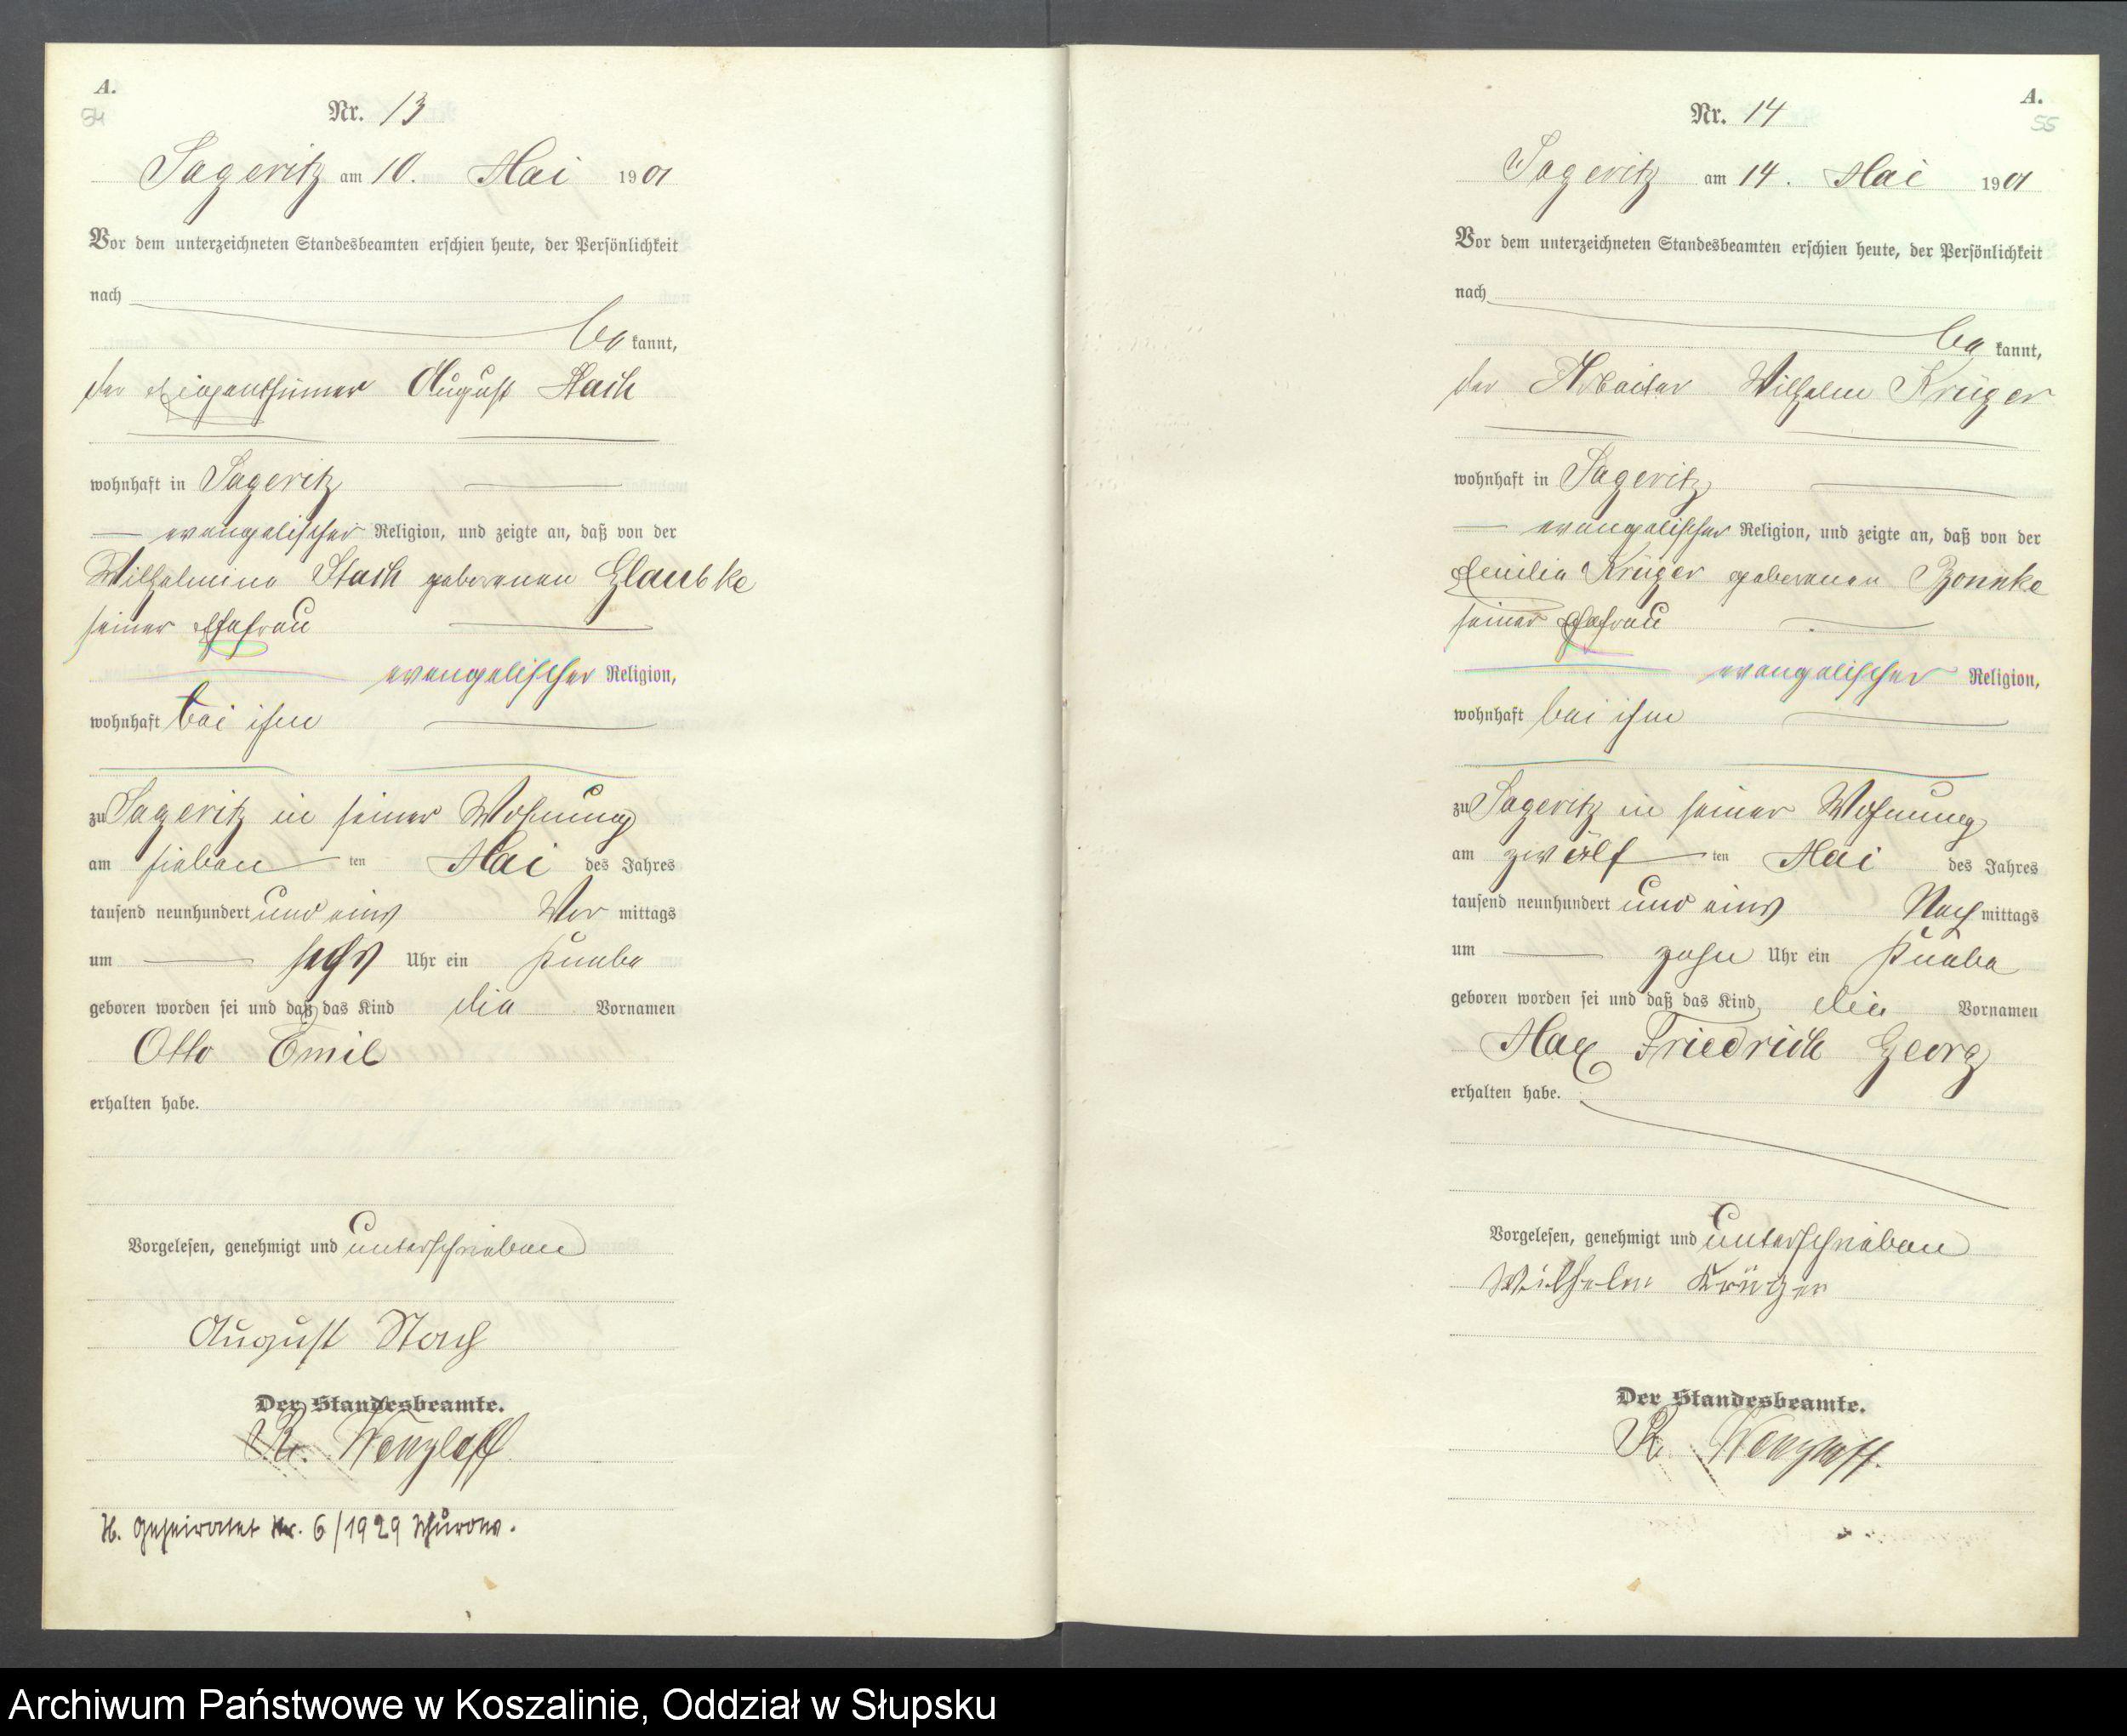 A.
54
Nr. 13
Sageritz am 10. Mai 1901
Vor dem unterzeichneten Standesbeamten erschien heute, der Persönlichkeit
nach
be kannt,
der Eigenthümer August Stach
wohnhaft in Sageritz
evangelischer Religion, und zeigte an, daß von der
Wilhelmine Stach geborenen Glaubke
seiner Ehefrau
evangelischer Religion,
wohnhaft bei ihm
zu Sageritz in seiner Wohnung
am sieben ten Mai des Jahres
tausend neunhundert und eins Vor mittags
um sechs Uhr ein Knabe
geboren worden sei und daß das Kind die Vornamen
Otto Emil
erhalten habe.
Vorgelesen, genehmigt und unterschrieben
August Stach
Der Standesbeamte.
R. Wenzlaff
H. Geheiratet Nr. 6/1929 Schurow.
A.
55
Nr. 14
Sageritz am 14. Mai 1901
Vor dem unterzeichneten Standesbeamten erschien heute, der Persönlichkeit
nach
be kannt,
der Arbeiter Wilhelm Krüger
wohnhaft in Sageritz
evangelischer Religion, und zeigte an, daß von der
Emilie Krüger geborenen Zonnke
seiner Ehefrau
evangelischer Religion,
wohnhaft bei ihm
zu Sageritz in seiner Wohnung
am zwölf ten Mai des Jahres
tausend neunhundert und eins Nach mittags
um zehn Uhr ein Knabe
geboren worden sei und daß das Kind die Vornamen
Max Friedrich Georg
erhalten habe.
Vorgelesen, genehmigt und unterschrieben
Wilhelm Krüger
Der Standesbeamte.
R. Wenzlaff.
Archiwum Państwowe w Koszalinie, Oddział w Słupsku